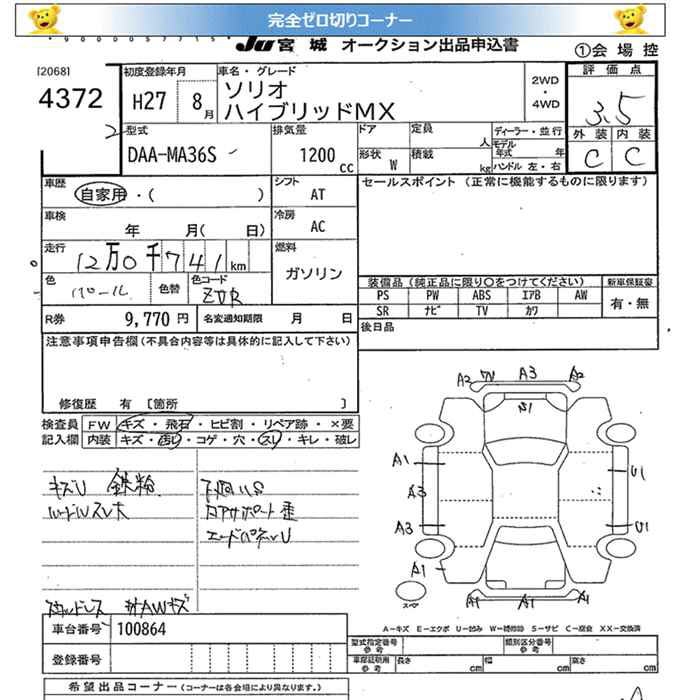 完全ゼロ切りコーナー
Ju 宮城 オークション出品申込書
①会場控
[2068]
4372
初度登録年月
H27 8月
車名・グレード
ソリオ
ハイブリッドMX
2WD
・
4WD
評価点
3.5
外装 内装
C C
型式
DAA-MA36S
排気量
1200cc
ドア
定員
人
形状
W
積載
kg
ディーラー・並行
モデル年式
ハンドル 左・右
車歴
自家用・( )
シフト
AT
セールスポイント (正常に機能するものに限ります)
車検
年 月( 日)
冷房
AC
走行
12万0千741km
燃料
ガソリン
色
パール
色替
色コード
ZVR
装備品 (純正品に限り〇をつけてください)
新車保証書
PS PW ABS エアB AW
有・無
SR ナビ TV カワ
R券 9,770円
名変通知期限 月 日
後日品
注意事項申告欄(不具合内容等は具体的に記入して下さい)
修復歴 有 [箇所 ]
検査員記入欄
FW キズ・飛石・ヒビ割・リペア跡・×要
内装 キズ・汚レ・コゲ・穴・スレ・キレ・破レ
キズU 鉄粉
下廻りS
コアサポート歪
A2 W A3 A2
S1
A1
A3
A3
A1
U1
U1
A1 A1 A1
スペア
A-キズ E-エクボ U-凹み W-補修跡 S-サビ C-腐食 XX-交換済
車台番号 100864
登録番号
型式指定番号
参考
類別区分番号
参考
車庫証明用
参考
長さ cm
幅 cm
高さ cm
希望出品コーナー (コーナーは各会場により異なります。)